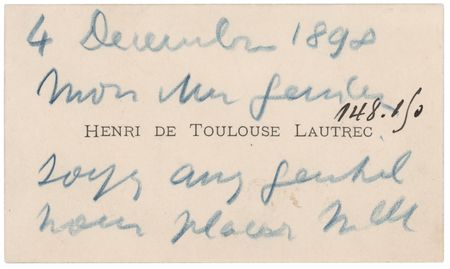 4 Decembre 1898
Mon cher
HENRI DE TOULOUSE LAUTREC
soyez assez gentil
pour placer Mlle